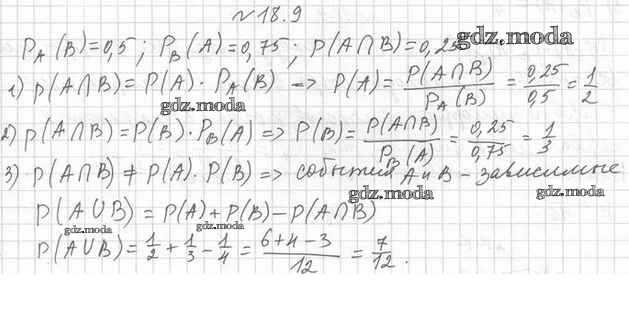 №18.9
P_A(B)=0,5; P_B(A)=0,75; P(A∩B)=0,25 gdz.moda
1) P(A∩B)=P(A)·P_A(B) => P(A)=P(A∩B)/P_A(B)=0,25/0,5=1/2
gdz.moda
2) P(A∩B)=P(B)·P_B(A)=>P(B)=P(A∩B)/P_B(A)=0,25/0,75=1/3
3) P(A∩B)≠P(A)·P(B)=> события A и B - зависимые
gdz.moda gdz.moda
P(A∪B)=P(A)+P(B)-P(A∩B)
gdz.moda gdz.moda
P(A∪B)=1/2+1/3-1/4=(6+4-3)/12=7/12.